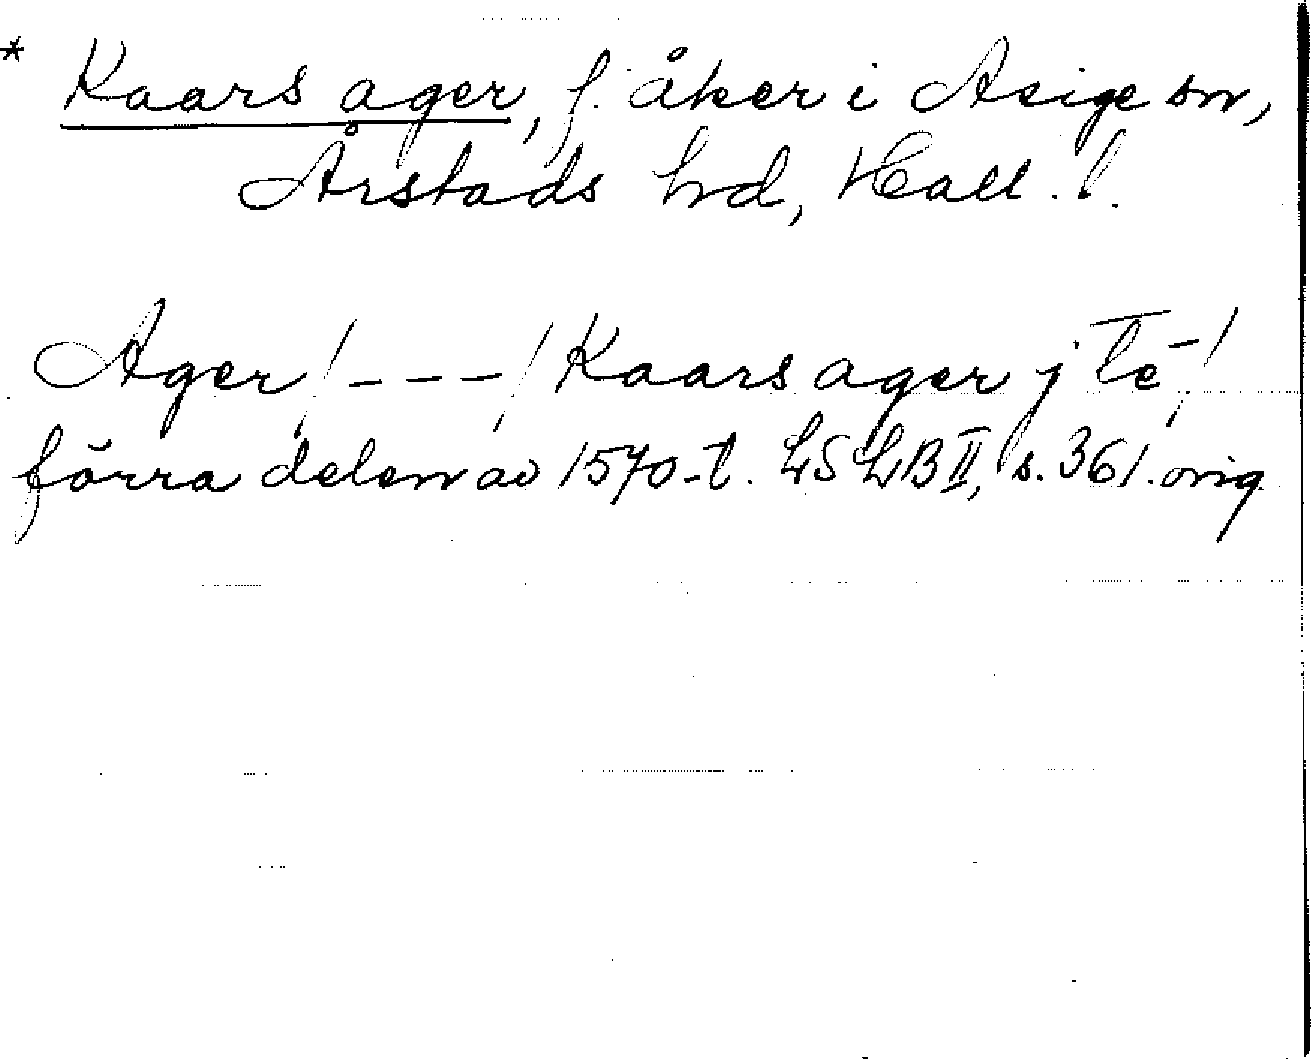 * Kaars ager, f. åker i Asige sn,
Årstads hd, Hall. l.
Ager / - - - / Kaars ager j
förra delen av 1570-t. LSLB II, s. 361. orig